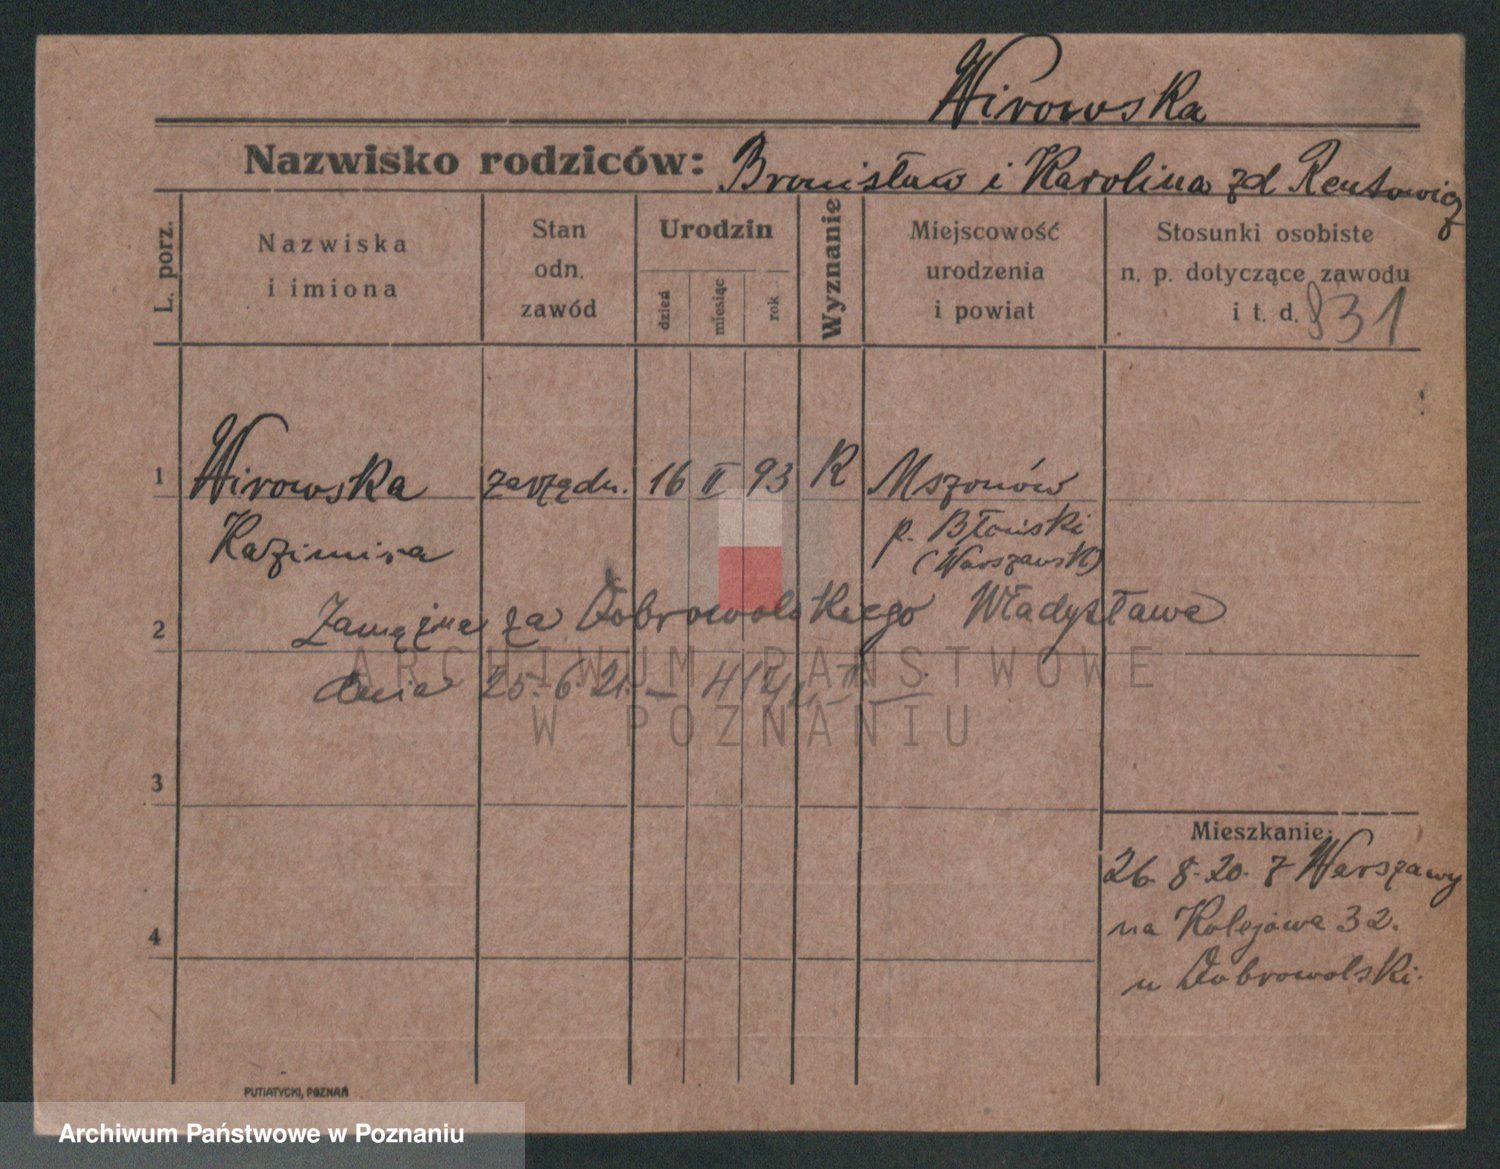 Wirowska
Nazwisko rodziców: Bronisław i Karolina zd Rentowicz
L. porz.
Nazwiska
i imiona
Stan
odn.
zawód
Urodzin
dzień
miesiąc
rok
Wyznanie
Miejscowość
urodzenia
i powiat
Stosunki osobiste
n. p. dotyczące zawodu
i t. d. 831
1 Wirowska zarządn. 16 II 93 R Mszonów
Kazimira p. Błoński
(Warszawsk)
2 Zamężna za Dobrowolskiego Władysława
dnia 25.6.21.
3
Mieszkanie:
26. 8. 20. z Warszawy
na Kolejowa 32.
u Dobrowolski.
4
PUTIATYCKI, POZNAŃ
ARCHIWUM PAŃSTWOWE
W POZNANIU
Archiwum Państwowe w Poznaniu